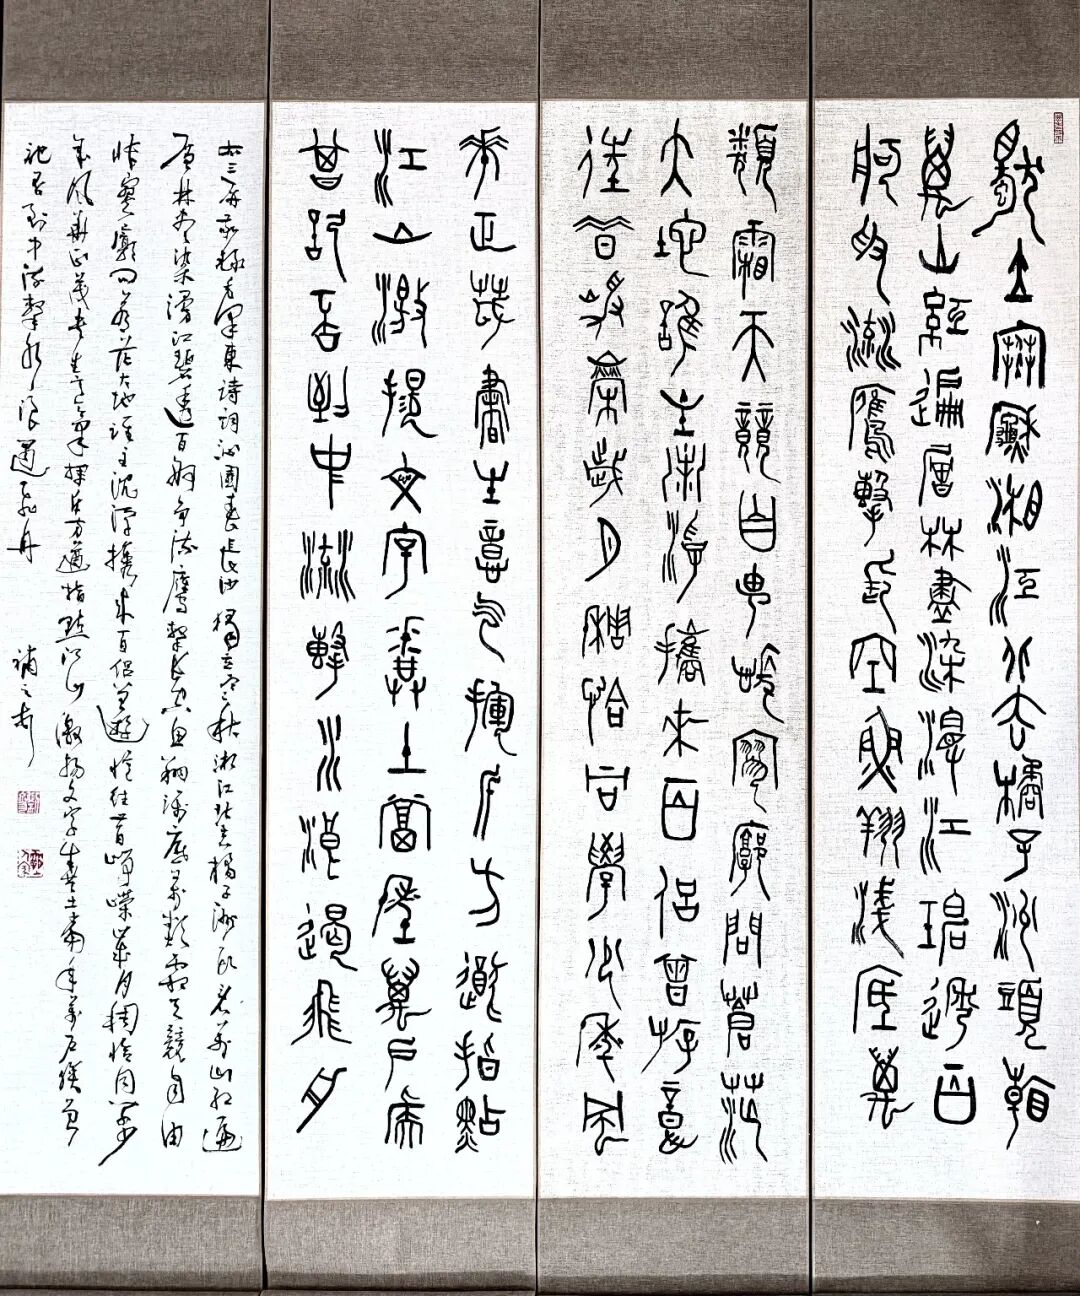 獨立寒秋湘江北去橘子洲頭看
萬山紅遍層林盡染漫江碧透百
舸爭流鷹擊長空魚翔淺底萬
類霜天競自由悵寥廓問蒼茫
大地誰主沉浮攜來百侶曾游憶
往昔崢嶸歲月稠恰同學少年風
華正茂書生意氣揮斥方遒指點
江山激揚文字糞土當年萬戶侯
曾記否到中流擊水浪遏飛舟
右三屏录毛澤東詩詞沁園春長沙獨立寒秋湘江北去橘子洲頭看萬山紅遍
層林盡染漫江碧透百舸爭流鷹擊長空魚翔淺底萬類霜天競自由
悵寥廓問蒼茫大地誰主沉浮攜來百侶曾遊憶往昔崢嶸歲月稠恰同學少
年風華正茂書生意氣揮斥方遒指點江山激揚文字糞土當年萬户侯曾
記否到中流擊水浪遏飛舟 補之書